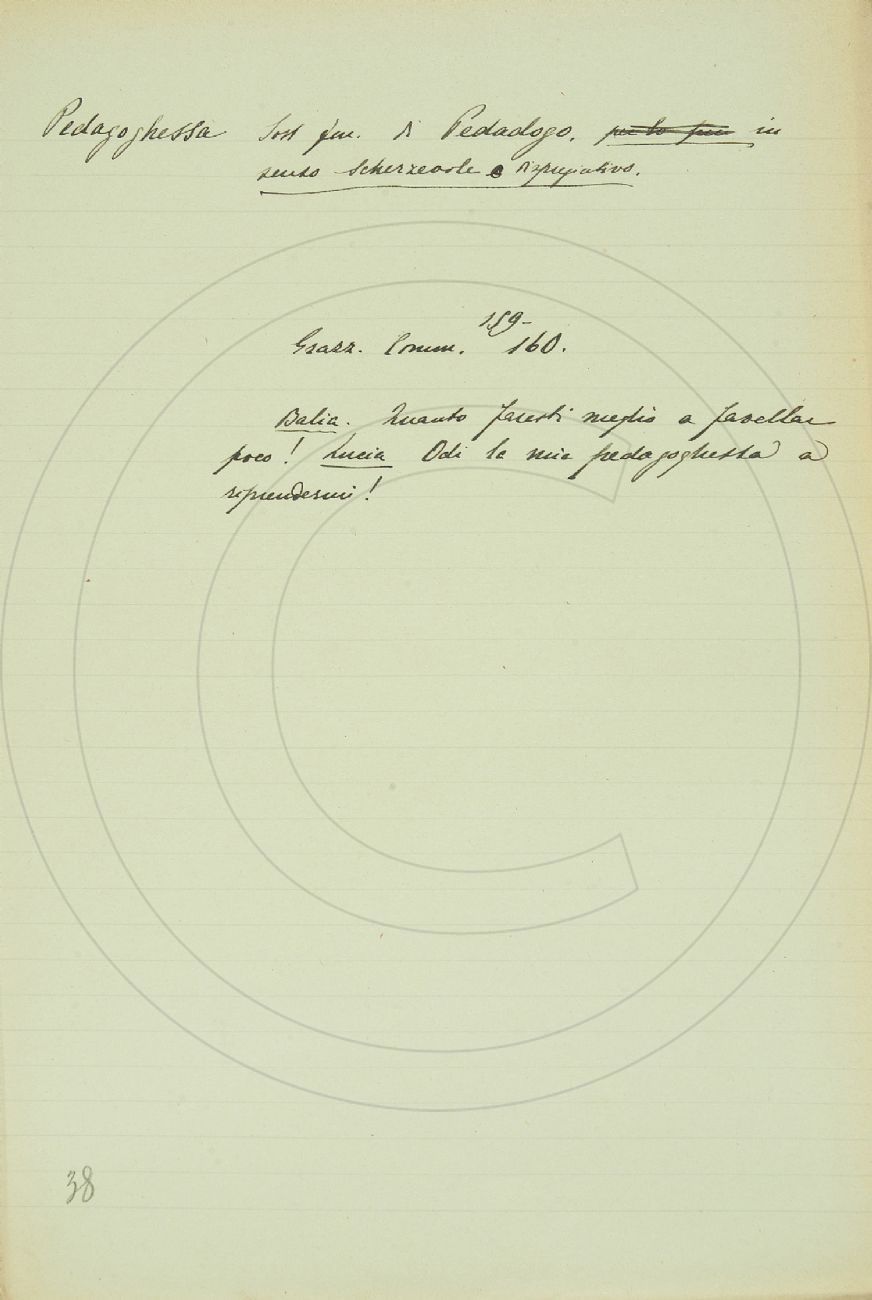 Pedagoghessa Sost fem. di Pedadogo. in
senso scherzevole e dispregiativo.
159-
Grazz. Comm. 160.
Balia. Quanto faresti meglio a favellar
poco! Lucia Odi la mia pedagoghessa a
riprendermi!
38